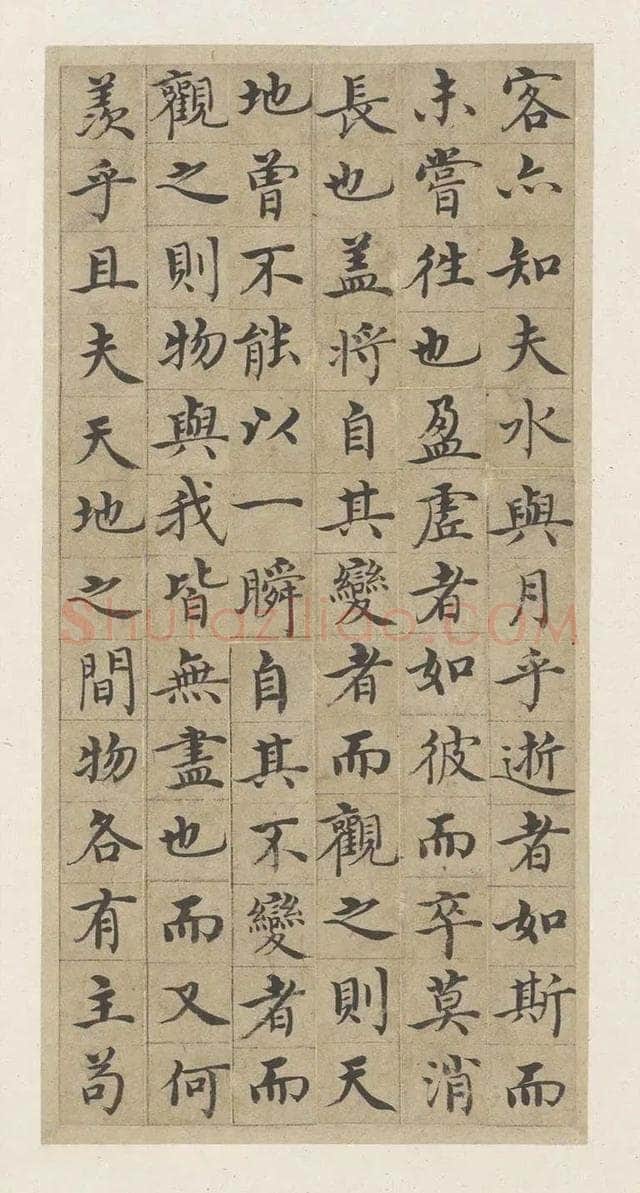 客亦知夫水與月乎逝者如斯而
未嘗往也盈虛者如彼而卒莫消
長也盖將自其變者而觀之則天
地曾不能以一瞬自其不變者而
觀之則物與我皆無盡也而又何
羨乎且夫天地之間物各有主苟
Shufaziliao.COM